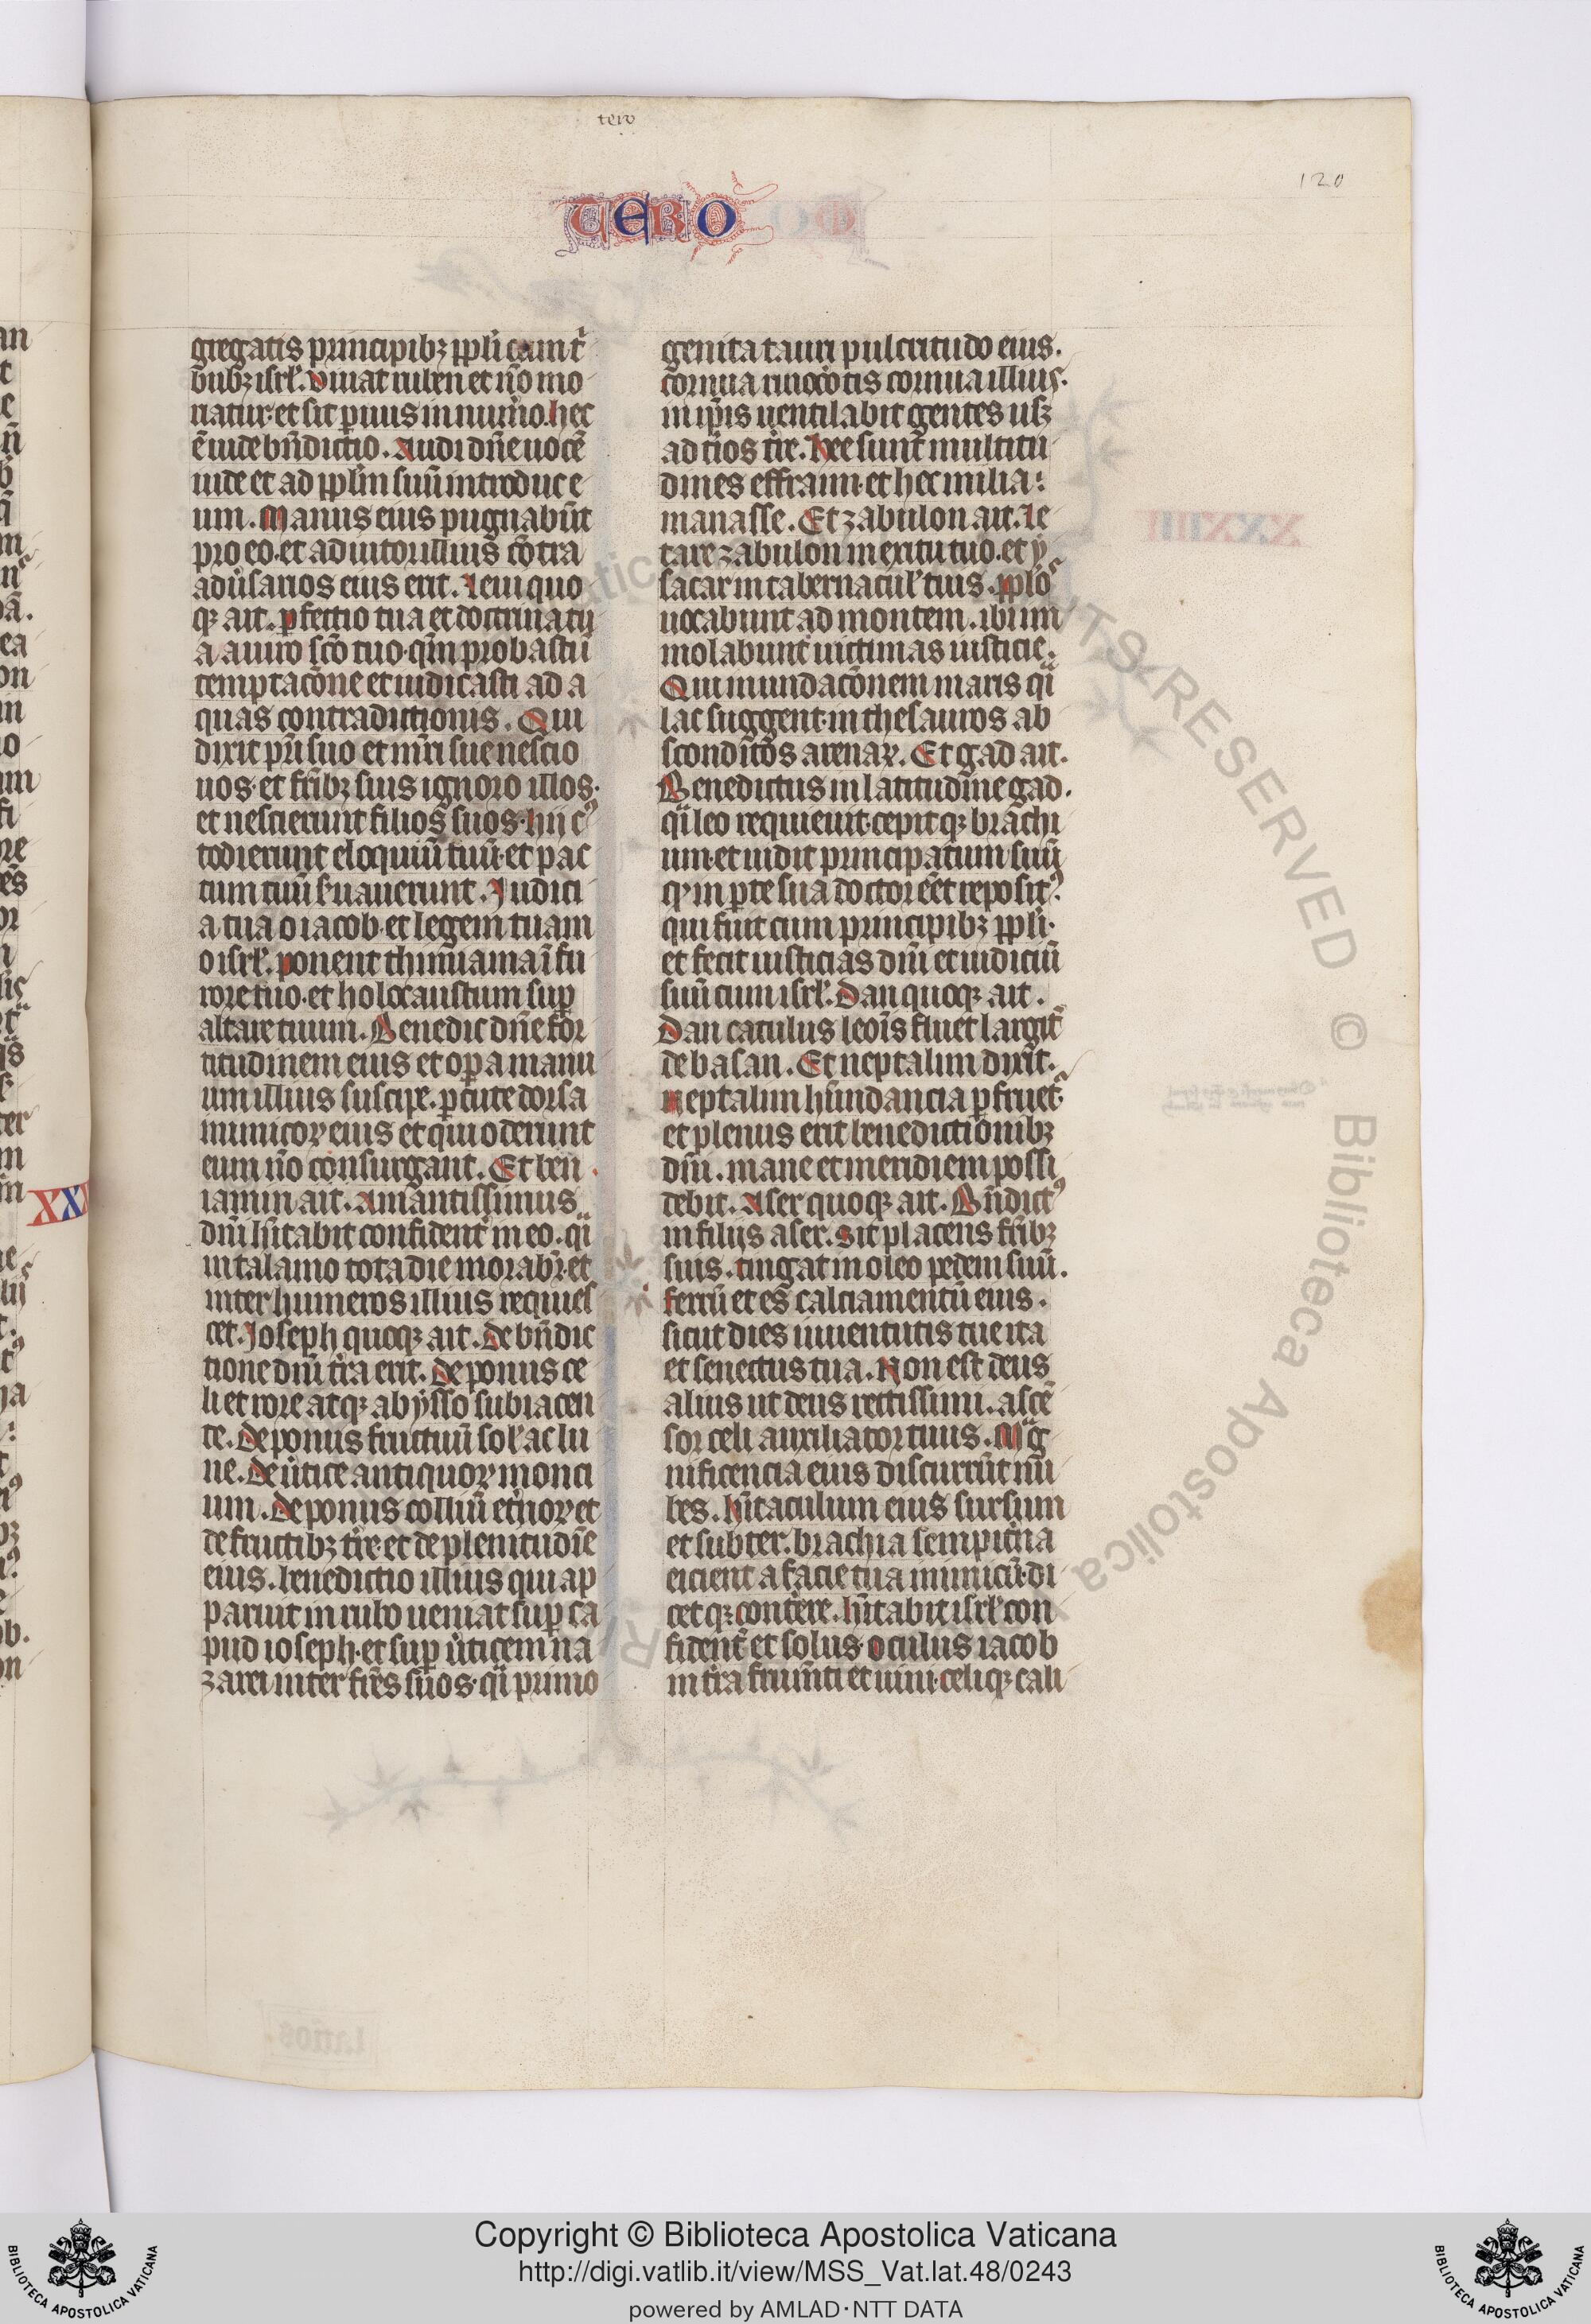 tero
120
TERO
gregatis principibꝫ ppl̄i cum tͥ
bubꝫ isrl̓. Viuat ruben et nō mo
riatur et sit paruus in num̄o. hec
ē iude bn̄dictio. Audi dn̄e uocē
iude et ad ppl̄m suū introduc e
um. Manus eius pugnabūt
pro eo. et adiutor illius cōtra
adūsarios eius erit. Leui quo
qꝫ ait. ꝑfectio tua et doctrina tu
a a uiro scō tuo. qm̄ probasti ī
temptacōne et iudicasti ad a
quas contradictionis. Qui
dixit pr̄i suo et mr̄i sue nescio
uos. et fr̄ibꝫ suis ignoro illos.
et nescierunt filios suos. hij cꝰ
todierunt eloquiū tuū. et pac
tum tuū s̓uauerunt. Iudici
a tua o iacob. et legem tuam
o isrl̓. ponent thimiama ī fu
rore tuo. et holocaustum suꝑ
altare tuum. Benedic dn̄e for
titudinem eius et oꝑa manu
um illius suscipe. ꝑcute dorsa
inimicoꝝ eius et qui oderunt
eum nō consurgant. Et ben
iamin ait. Amantissimus
dn̄i hītabit confident̓ in eo. qͣi
in talamo tota die morabr̄. et
inter humeros illius requies
cet. Ioseph quoqꝫ ait. De bn̄dic
tione dn̄i tr̄a erit. De pomis ce
li et rore atqꝫ abysso subiacen
te. De pomis fructuū sol̓ ac lu
ne. De ūtice antiquoꝝ monci
um. De pomis colliū et̓noꝝ et
de fructibꝫ tr̄e et de plenitudīe
eius. benedictio illius qui ap
paruit in rubo ueniat suꝑ ca
pud ioseph. et suꝑ ūticem na
zarei inter fr̄es suos. qͣi primo
genita tauri pulcritudo eius.
cornua rinocotis cornua illius.
in ip̄is uentilabit gentes usꝫ
ad tīos tr̄e. Hee sunt multitu
dines effraim. et hec milia
manasse. Et zabulon ait. Le
tare zabulon in exitu tuo. et y
sacar in tabernacul̓ tuis. ppl̄os
uocabunt ad montem. ibi im
molabunt uictimas iusticie.
Qui inundacōnem maris qͣi
lac suggent. in thesauros ab
sconditos arenaꝝ. Et gad ait.
Benedictus in latitudine gad.
qͣi leo requieuit. cepitqꝫ brachi
um. et uidit principatum suū
qꝙ in ꝑte sua doctor eēt reposit̓ꝰ
qui fuit cum principibꝫ ppl̄i.
et fecit iusticias dn̄i et iudiciū
suū cum isrl̓. Dan quoqꝫ ait.
Dan catulus leoīs fluet largit̓
de basan. Et neptalim dixit.
Neptalim habundancia ꝑfruet̓.
et plenus erit benedictionibꝫ
dn̄i. mare et meridiem possi
debit. Aser quoqꝫ ait. Bn̄dictꝰ
in filijs aser. Sit placens fr̄ibꝫ
suis. tingat in oleo pedem suū.
ferrū et es calciamentū eius.
sicut dies iuuentutis tue ita
et senectus tua. Non est deus
alius ut deus rectissimi. ascē
sor celi auxiliator tuus. Mag
nificencia eius discurrūt nu
bes. hītaculum eius sursum
et subter. brachia sempit̓na
eiciet a facie tua inimicū. di
cetqꝫ conterere. hītabit isrl̓ con
fident̓ et solus. oculus iacob
in tr̄a frum̄ti et uini. celiqꝫ cali
XXX
Copyright © Biblioteca Apostolica Vaticana
http://digi.vatlib.it/view/MSS_Vat.lat.48/0243
powered by AMLAD·NTT DATA
BIBLIOTECA APOSTOLICA VATICANA
BIBLIOTECA APOSTOLICA VATICANA